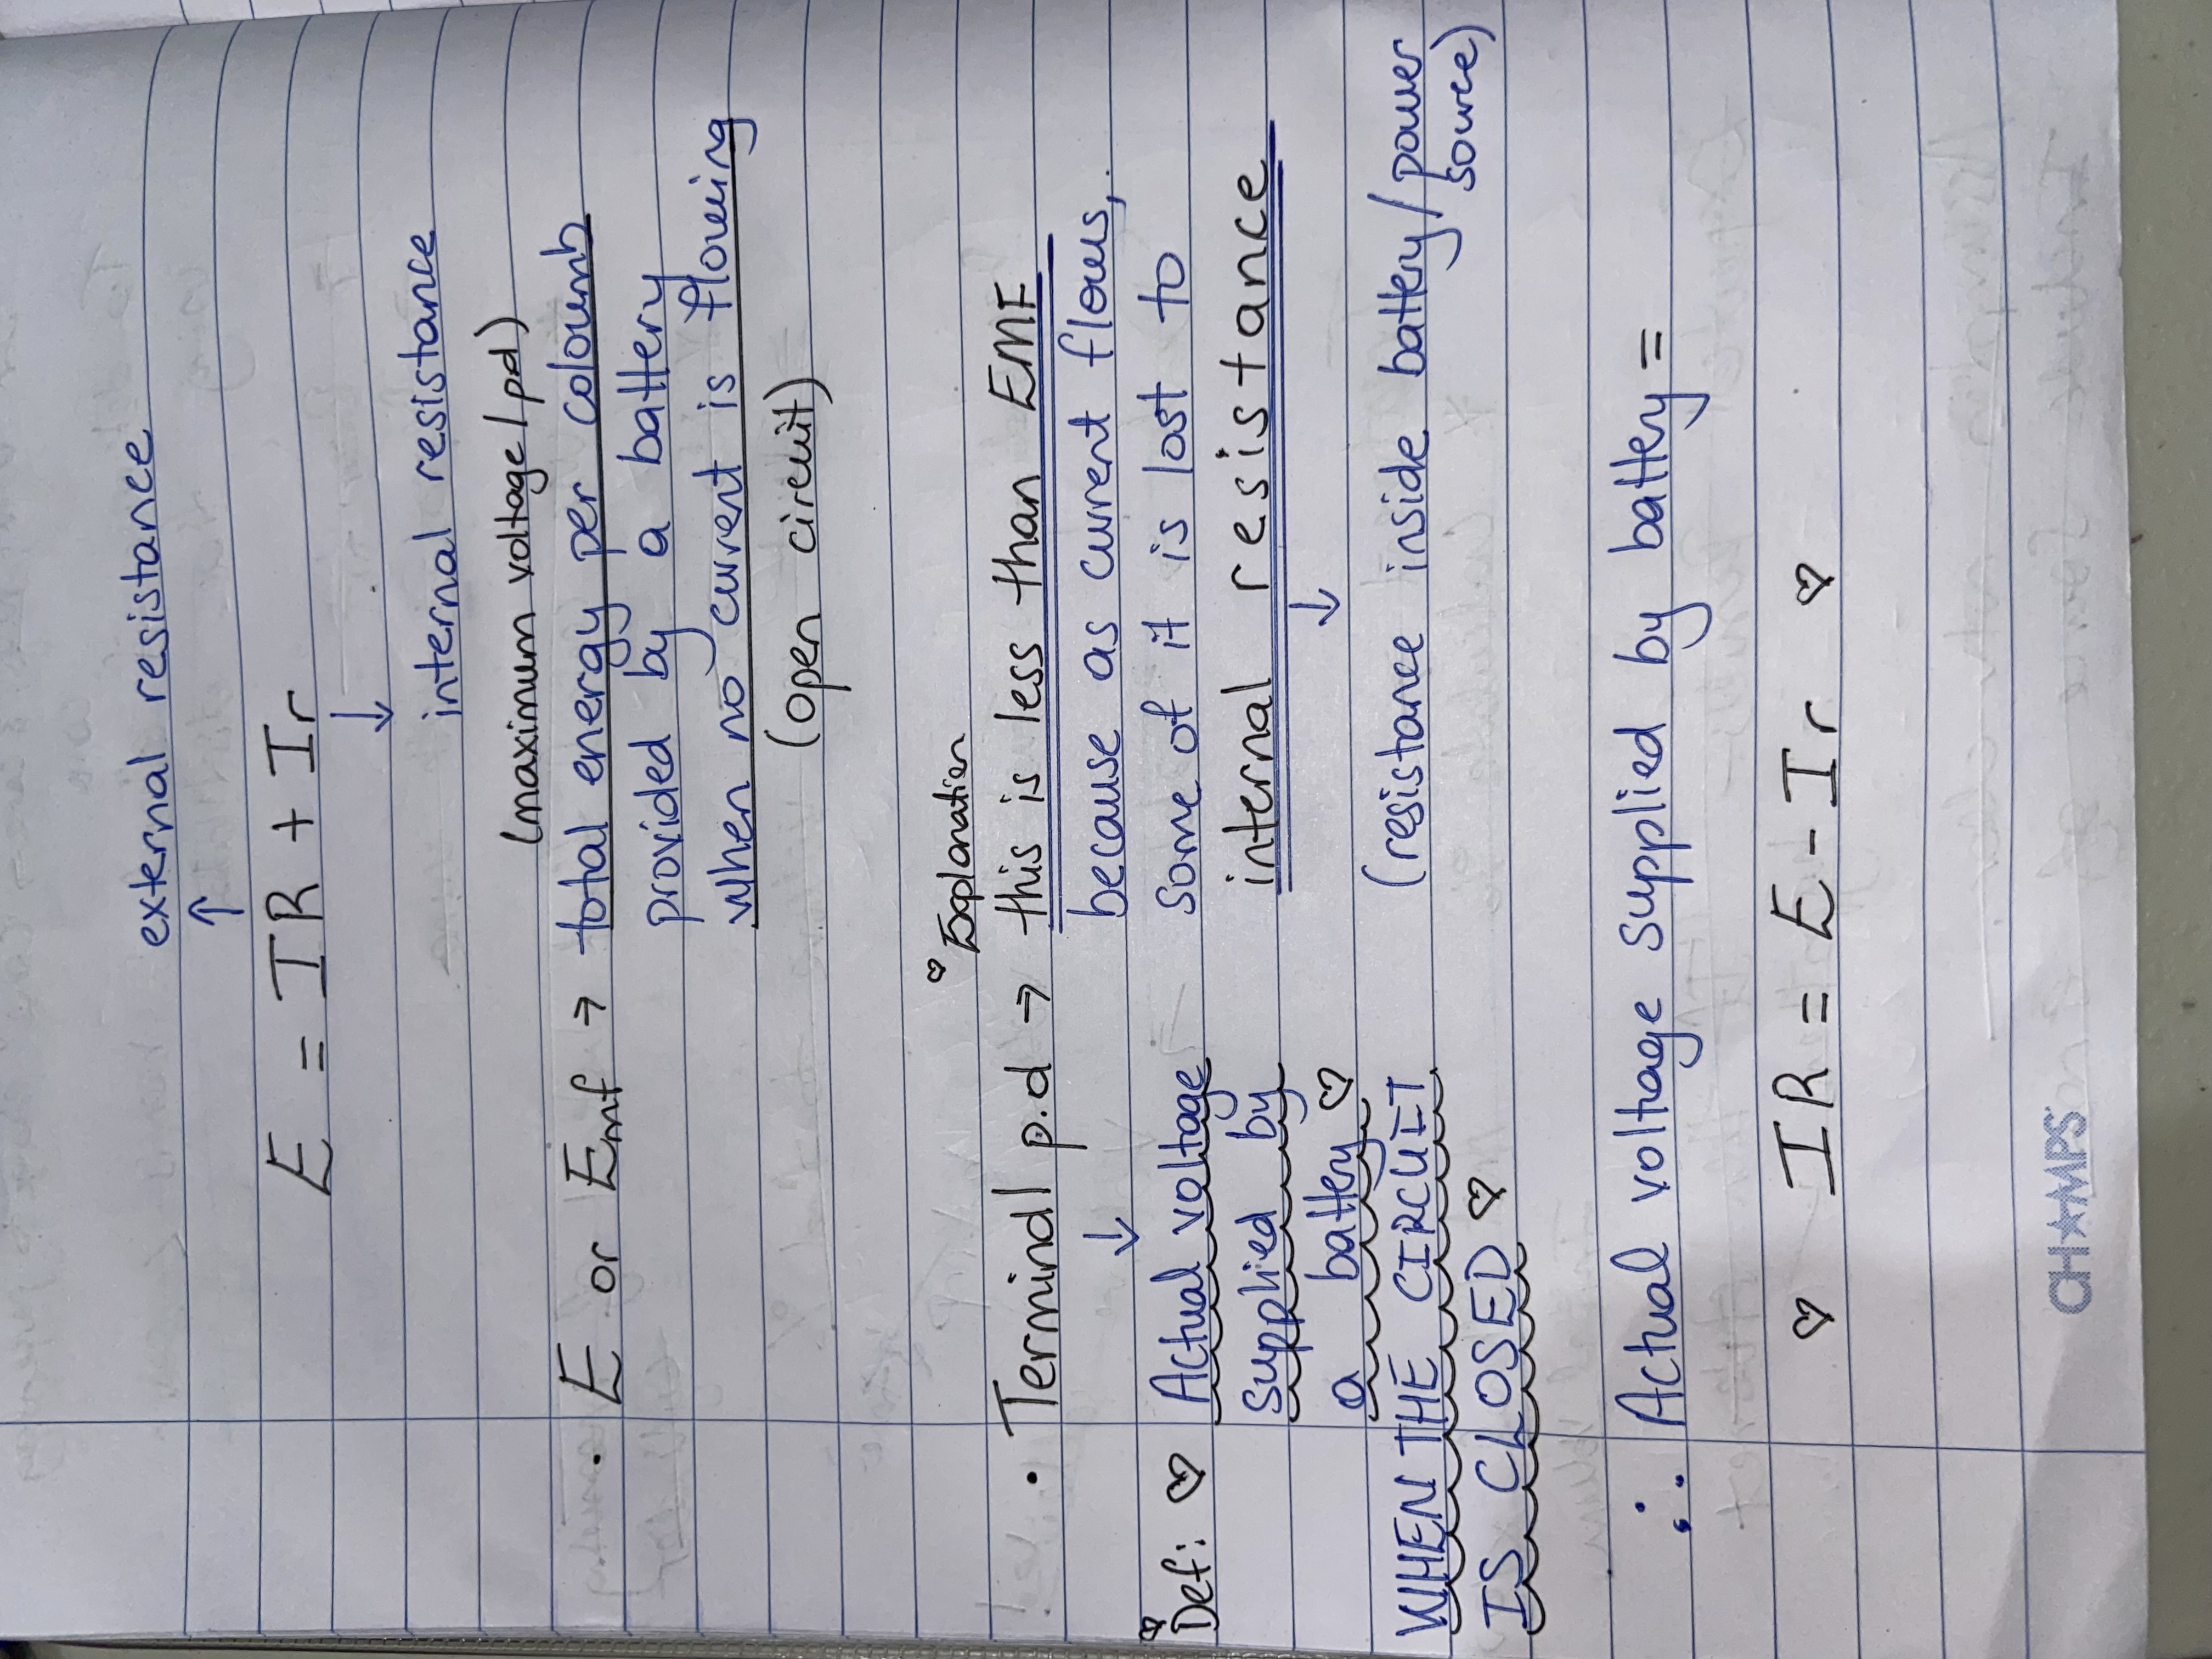 external resistance
↑
E = IR + Ir
↓
internal resistance
(maximum voltage/pd)
• E or Emf → total energy per coloumb
provided by a battery
when no current is flowing
(open circuit)
♡ Explanation
• Terminal p.d → this is less than EMF
↓ because as current flows,
Def: ♡ Actual voltage some of it is lost to
supplied by internal resistance
a battery ♡ ↓
WHEN THE CIRCUIT (resistance inside battery/power
IS CLOSED ♡ source)
∴ Actual voltage supplied by battery =
♡ IR = E - Ir ♡
CH★MPS